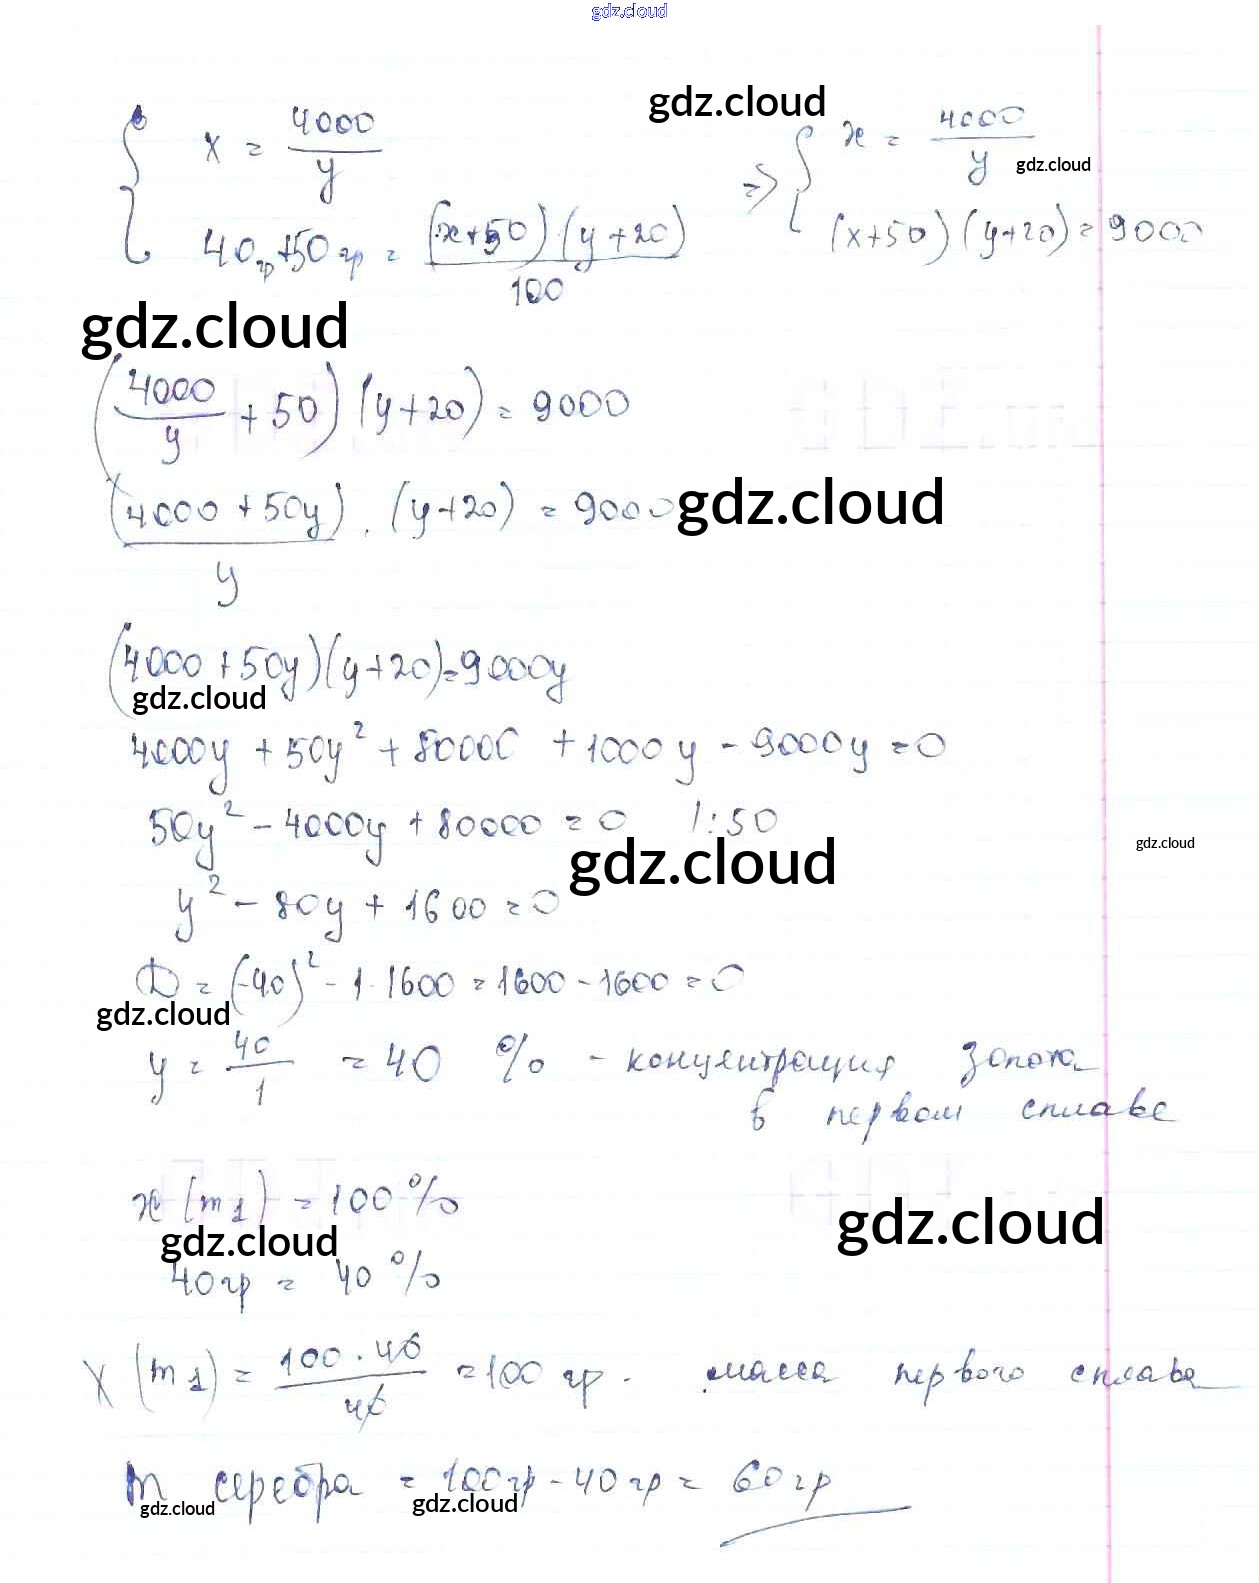 gdz.cloud
gdz.cloud
{ x = 4000/y => { x = 4000/y
gdz.cloud
40гр+50гр = (x+50)(y+20)/100 (x+50)(y+20)=9000
gdz.cloud
(4000/y + 50)(y+20) = 9000
(4000+50y)/y · (y+20) = 9000
gdz.cloud
(4000+50y)(y+20)=9000y
gdz.cloud
4000y + 50y² + 80000 + 1000y - 9000y = 0
50y² - 4000y + 80000 = 0 |:50
gdz.cloud
gdz.cloud
y² - 80y + 1600 = 0
D = (-40)² - 1·1600 = 1600 - 1600 = 0
gdz.cloud
y = 40/1 = 40 % - концентрация золота
в первом сплаве
x (m1) = 100 %
gdz.cloud
gdz.cloud
40гр = 40 %
x (m1) = 100·40/40 = 100 гр. масса первого сплава
m серебра = 100гр - 40гр = 60гр
gdz.cloud
gdz.cloud